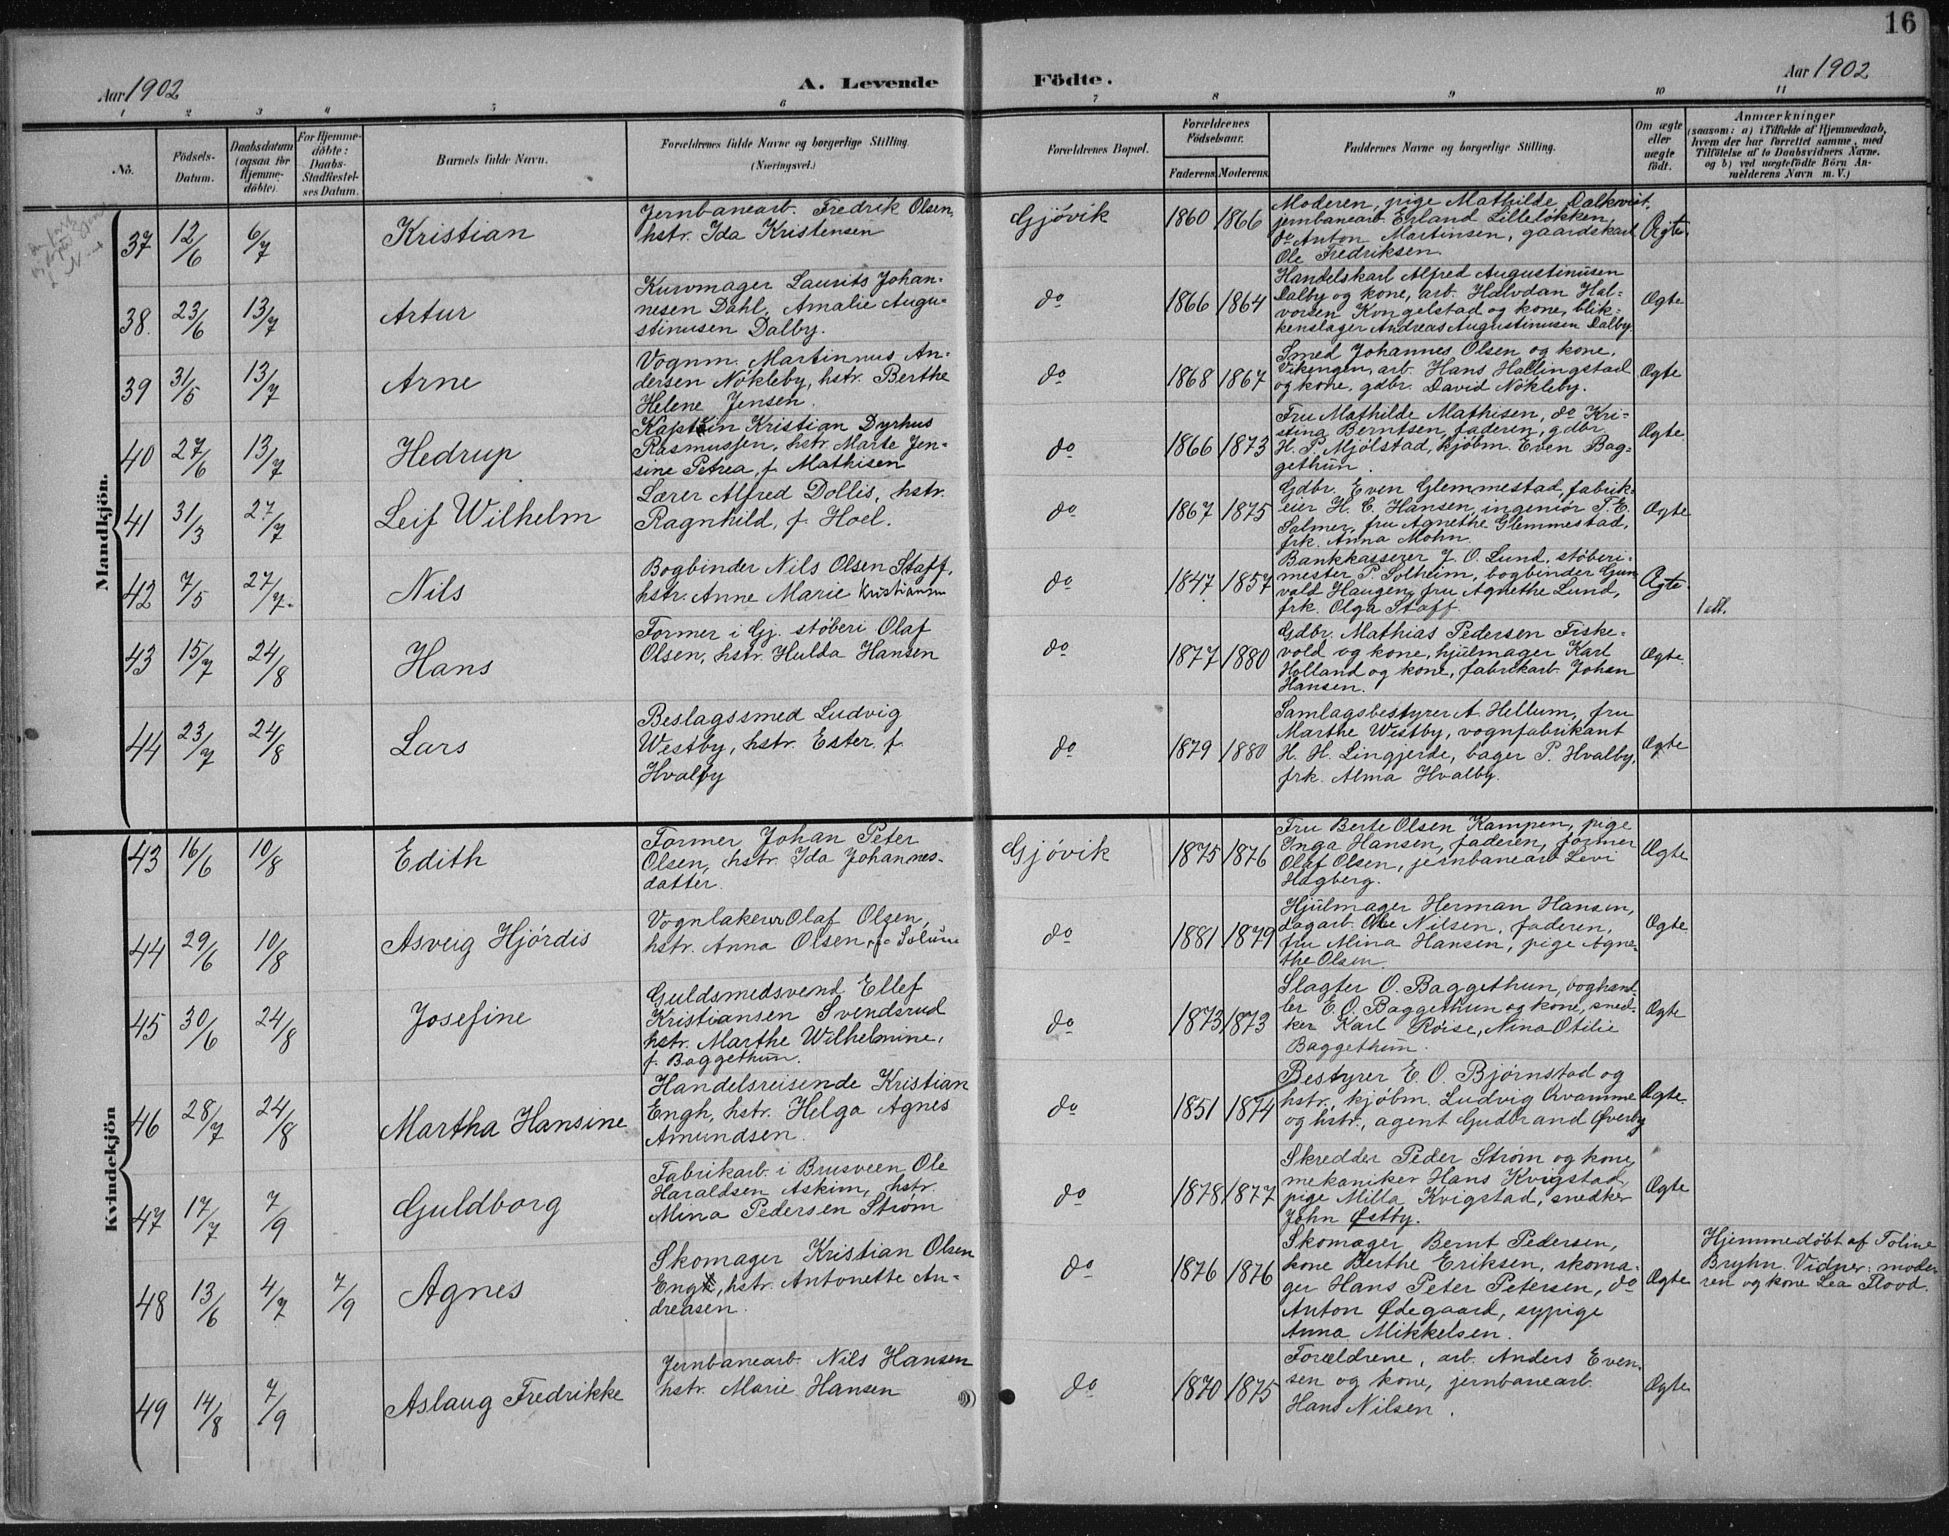 16
Aar 1902
A. Levende Födte.
Aar 1902
1 2 3 4 5 6 7 8 9 10 11
No.
Födsels-Datum.
Daabsdatum (ogsaa for Hjemme-döbte).
For Hjemme-döbte: Daabs-Stadfæstel-ses Datum.
Barnets fulde Navn.
Forældrenes fulde Navne og borgerlige Stilling.
(Næringsvei.)
Forældrenes Bopæl.
Forældrenes Födselsaar.
Faderens. Moderens.
Faddernes Navne og borgerlige Stilling.
Om ægte eller uægte födt.
Anmærkninger
(saasom: a) i Tilfælde af Hjemmedaab,
hvem der har forrettet samme, med
Tilföielse af to Daabsvidners Navne.
og b) ved uægtefödte Börn An-
melderens Navn m. V.)
Mandkjön.
37 12/6 6/7 Kristian
Jernbanearb. Fredrik Olsen,
hstr. Ida Kristensen
Gjøvik 1860 1866
Moderen, pige Mathilde Dalkvist,
jernbanearb. Erland Lilleløkken,
do Anton Martinsen, gaardskarl
Ole Fredriksen.
Ægte.
38. 23/6 13/7 Artur
Kurvmager Laurits Johan-
nesen Dahl, Amalie Augu-
stinusen Dalby.
do 1866 1864
Handelskarl Alfred Augustinusen
Dalby og kone, arb. Halvdan Hal-
vorsen Kongelstad og kone, blik-
kenslager Andreas Augustinusen Dalby.
Ægte
39 31/5 13/7 Arne
Vognm. Martinnus An-
dersen Nøkleby, hstr. Berthe
Helene Jensen.
do 1868 1867
Smed Johannes Olsen og kone,
Vikengen, arb. Hans Hallingstad
og kone, gdbr. David Nøkleby.
Ægte
40 27/6 13/7 Hedrup
Kaptein Kristian Dyrhus
Rasmussen, hstr. Marte Jen-
sine Petrea, f. Mathisen
do 1866 1873
Fru Mathilde Mathisen, do Kri-
stina Berntsen, faderen, gdbr.
H. P. Mjølstad, kjøbm. Even Bag-
gethun.
Ægte.
41 31/3 27/7 Leif Wilhelm
Lærer Alfred Dollis, hstr.
Ragnhild, f. Hoel.
do 1867 1875
Gdbr. Even Glemmestad, fabrik-
eier H. C. Hansen, ingeniør T. E.
Salmer, fru Agnethe Glemmestad,
frk. Anna Mohn.
Ægte
42 7/5 27/7. Nils
Bogbinder Nils Olsen Staff,
hstr. Anne Marie Kristiansen
do 1847 1857
Bankkasserer J. O. Lund, støberi-
mester P. Solheim, bogbinder Gun
vald Haugen, fru Agnethe Lund,
frk. Olga Staff.
Ægte.
1 att.
43 15/7 24/8 Hans
Former i Gj. støberi Olaf
Olsen, hstr. Hulda Hansen
do 1877 1880
Gdbr. Mathias Pedersen Fiske-
vold og kone, hjulmager Karl
Holland og kone, fabrikarb. Johan
Hansen.
Ægte.
44 23/7 24/8 Lars
Beslagssmed Ludvig
Westby, hstr. Ester, f.
Hvalby
do 1879 1880
Samlagsbestyrer A. Hellum, fru
Marthe Westby, vognfabrikant
H. H. Lingjerde, bager P. Hvalby,
frk. Alma Hvalby.
Ægte
Kvindekjön
43 16/6 10/8 Edith
Former Johan Peter
Olsen, hstr. Ida Johannes-
datter.
Gjøvik 1875 1876
Fru Berte Olsen Kampen, pige
Inga Hansen, faderen, former
Olaf Olsen, jernbanearb. Levi
Hagberg.
Ægte
44 29/6 10/8 Asveig Hjørdis
Vognlakerer Olaf Olsen,
hstr. Anna Olsen, f.
do 1881 1879
Hjulmager Herman Hansen,
dagarb. Ole Nilsen, faderen,
fru Mina Hansen, pige Agne-
the Olsen.
Ægte
45 30/6 24/8 Josefine
Guldsmedsvend Ellef
Kristiansen Svendsrud
hstr. Marthe Wilhelmine,
f. Baggethun.
do 1873 1873
Slagter O. Baggethun, boghand-
ler E. O. Baggethun og kone, sned-
ker Karl Røise, Nina Otilie
Baggethun.
Ægte
46 28/7 24/8 Martha Hansine
Handelsreisende Kristian
Engh, hstr. Helga Agnes
Amundsen.
do 1851 1874
Bestyrer E. O. Bjørnstad og
hstr., kjøbm. Ludvig Kvamme
og hstr., agent Gudbrand Øverby
Ægte.
47 17/7 7/9 Guldborg
Fabrikarb. i Brusveen Ole
Haraldsen Askim, hstr.
Mina Pedersen Strøm
do 1878 1877
Skredder Peder Strøm og kone,
mekaniker Hans Kvigstad,
pige Milla Kvigstad, snedker
John Østby.
Ægte
48 13/6 4/7 7/9 Agnes
Skomager Kristian Olsen
Eng, hstr. Antonette An-
dreasen.
do 1876 1876
Skomager Bernt Pedersen,
kone Berthe Eriksen, skoma-
ger Hans Peter Petersen, do
Anton Ødegaard, sypige
Anna Mikkelsen.
Ægte
Hjemmedøbt af Toline
Bryhn. Vidner: mode-
ren og kone Lea Flood.
49 14/8 7/9 Aslaug Fredrikke
Jernbanearb. Nils Hansen
hstr. Marie Hansen
do 1870 1875
Forældrene, arb. Anders Even-
sen og kone, jernbanearb.
Hans Nilsen.
Ægte